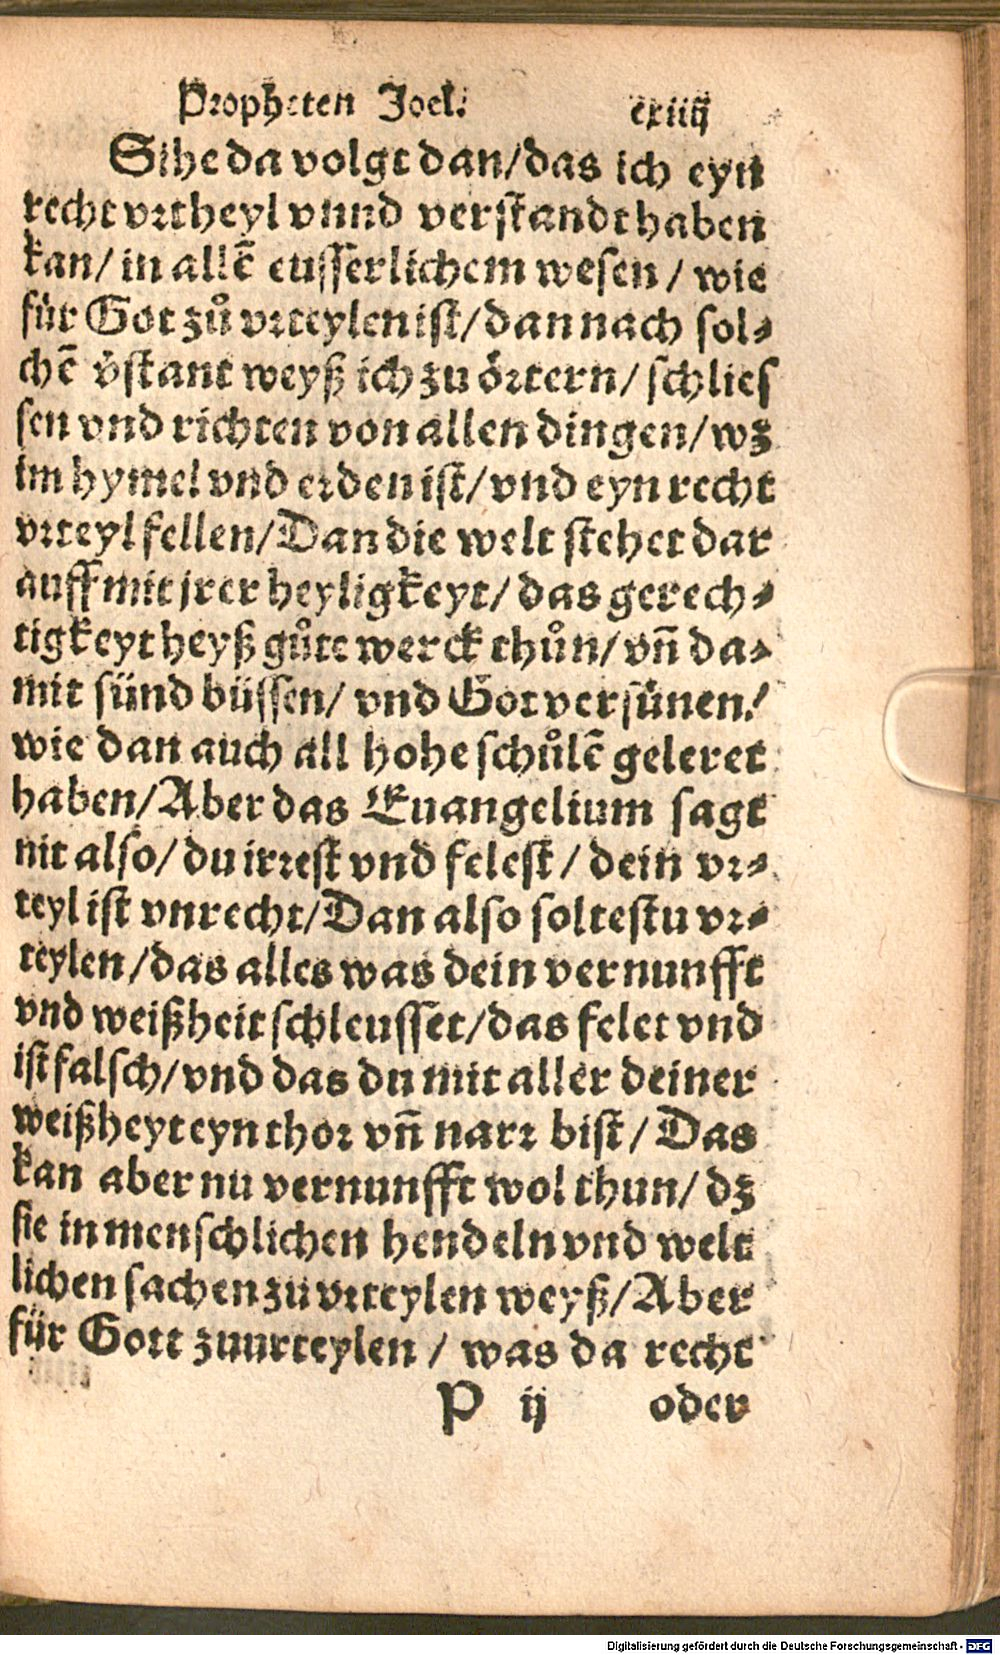 Propheten Joel. cxiiij
Sihe da volgt dan/das ich eyn
recht vrtheyl vnnd verstandt haben
kan/ in allē eusserlichem wesen / wie
für Got zů vrteylen ist/dan nach sol-
chē v̄stant weyß ich zu örtern/ schlies
sen vnd richten von allen dingen/wz
im hymel vnd erden ist/vnd eyn recht
vrteyl fellen/Dan die welt stehet dar
auff mit jrer heyligkeyt/ das gerech-
tigkeyt heyß gůte werck thůn/ vn̄ da-
mit sünd büssen/ vnd Got versünen/
wie dan auch all hohe schůlē geleret
haben/Aber das Euangelium sagt
nit also/ du irrest vnd felest / dein vr-
teyl ist vnrecht/Dan also soltestu vr-
teylen/das alles was dein vernunfft
vnd weißheit schleusset/das felet vnd
ist falsch/vnd das du mit aller deiner
weißheyt eyn thor vn̄ narr bist/ Das
kan aber nu vernunfft wol thun/ dz
sie in menschlichen hendeln vnd welt
lichen sachen zu vrteylen weyß/Aber
für Gott zuurteylen / was da recht
P ij oder
Digitalisierung gefördert durch die Deutsche Forschungsgemeinschaft - DFG